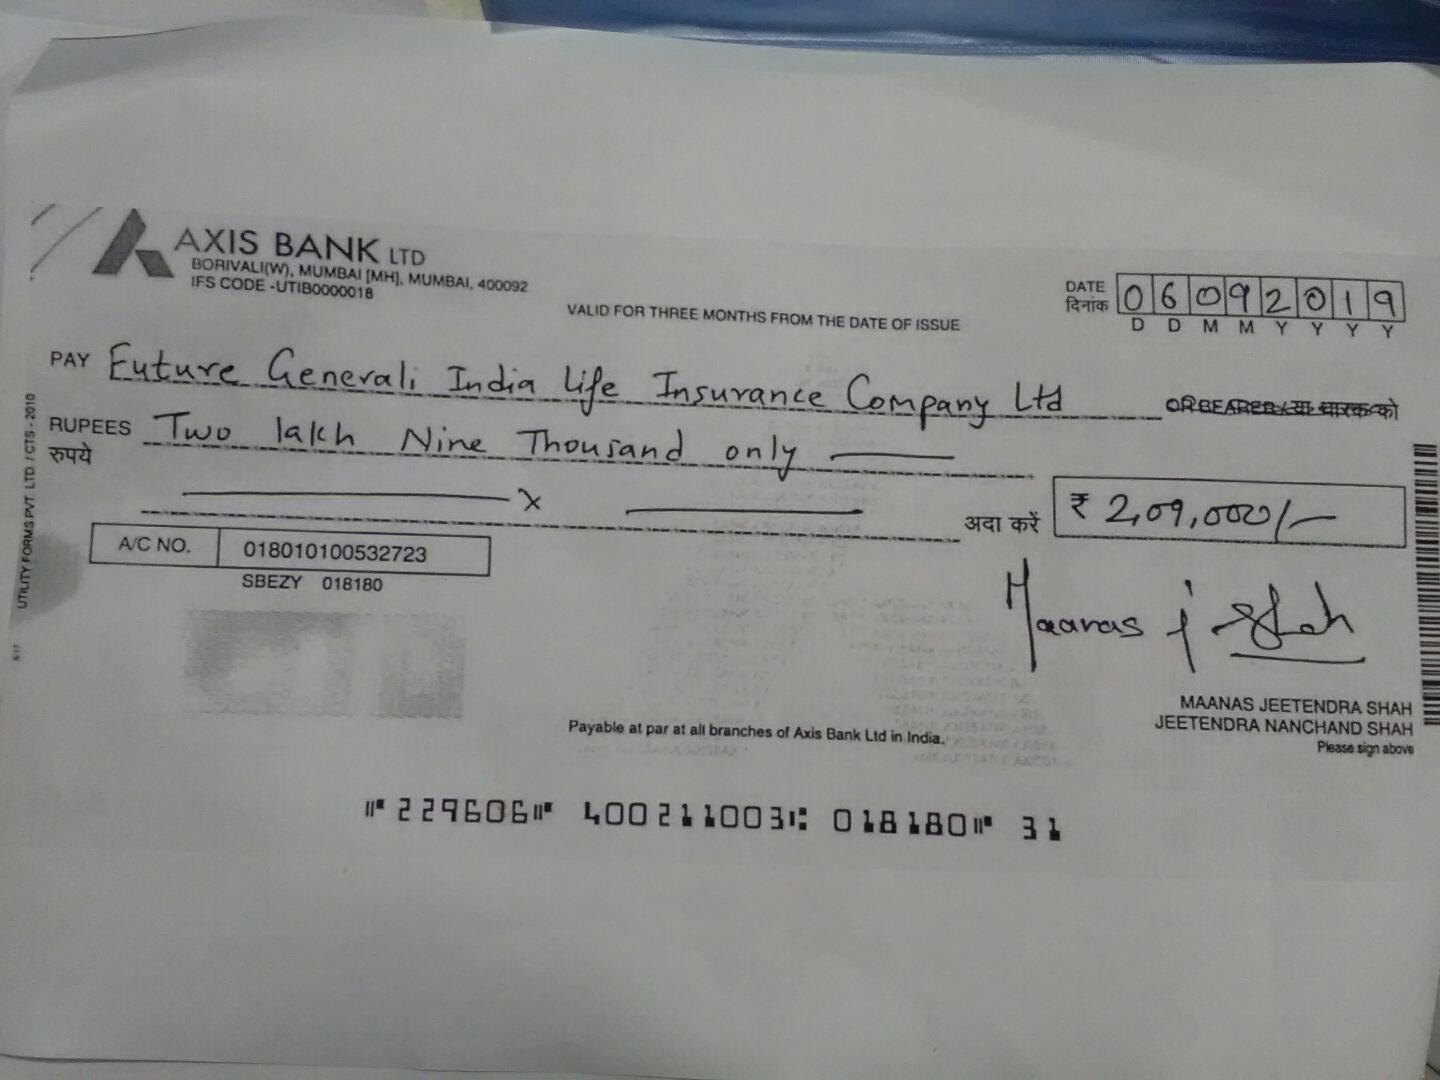 AXIS BANK LTD
BORIVALI(W), MUMBAI [MH], MUMBAI, 400092
IFS CODE -UTIB0000018
VALID FOR THREE MONTHS FROM THE DATE OF ISSUE
DATE
दिनांक
06092019
D D M M Y Y Y Y
PAY Future Generali India Life Insurance Company Ltd OR BEARER या धारक को
RUPEES Two lakh Nine Thousand only
रुपये
x
अदा करें ₹ 2,09,000/-
A/C NO. 018010100532723
SBEZY 018180
Maanas J Shah
MAANAS JEETENDRA SHAH
JEETENDRA NANCHAND SHAH
Please sign above
Payable at par at all branches of Axis Bank Ltd in India.
⑈229606⑈ 400211003⑆ 018180⑈ 31
UTILITY FORMS PVT. LTD. / CTS - 2010